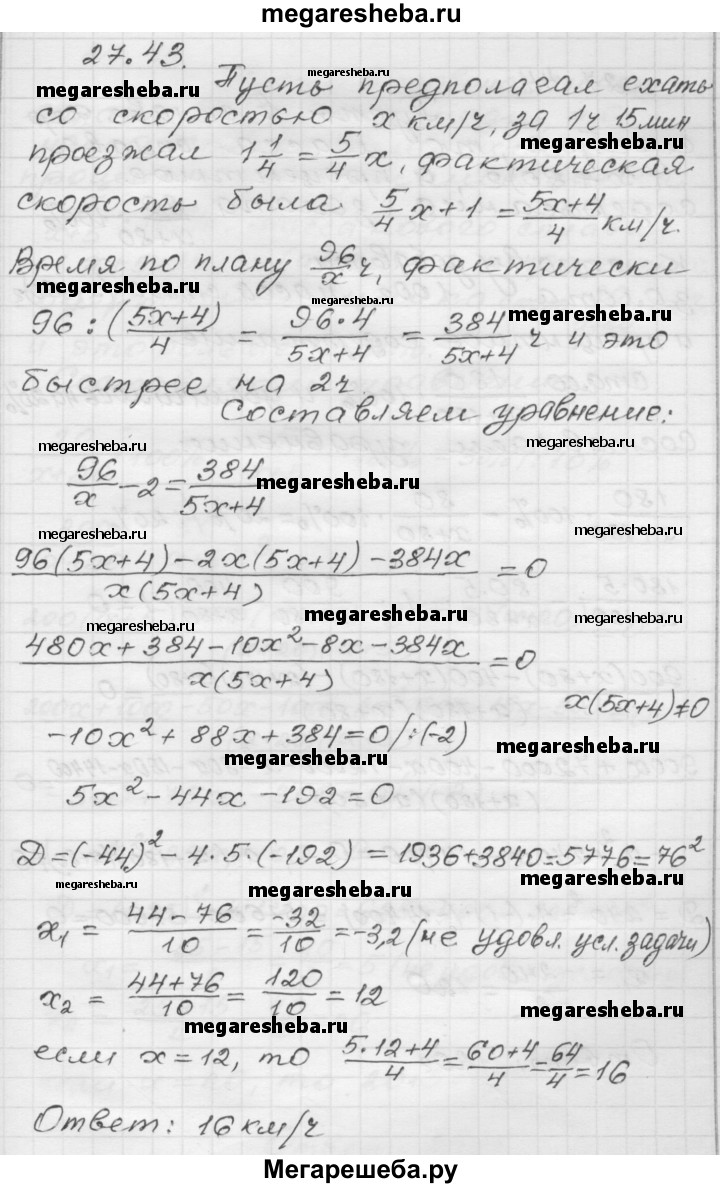 megaresheba.ru
27.43.
megaresheba.ru megaresheba.ru
Пусть предполагал ехать
со скоростью x км/ч, за 1ч 15мин
megaresheba.ru
проезжал 1 1/4 = 5/4 x, фактическая
скорость была 5/4 x + 1 = (5x+4)/4 км/ч.
Время по плану 96/x ч, фактически
megaresheba.ru megaresheba.ru megaresheba.ru
96 : ((5x+4)/4) = (96·4)/(5x+4) = 384/(5x+4) ч и это
быстрее на 2ч
Составляем уравнение:
megaresheba.ru megaresheba.ru
96/x - 2 = 384/(5x+4)
megaresheba.ru
megaresheba.ru megaresheba.ru
(96(5x+4) - 2x(5x+4) - 384x)/(x(5x+4)) = 0
megaresheba.ru megaresheba.ru megaresheba.ru
(480x + 384 - 10x² - 8x - 384x)/(x(5x+4)) = 0
x(5x+4)≠0
-10x² + 88x + 384 = 0 /:(-2)
megaresheba.ru megaresheba.ru
5x² - 44x - 192 = 0
D = (-44)² - 4·5·(-192) = 1936+3840 = 5776 = 76²
megaresheba.ru megaresheba.ru megaresheba.ru
x₁ = (44-76)/10 = -32/10 = -3,2 (не удовл. усл. задачи)
x₂ = (44+76)/10 = 120/10 = 12
megaresheba.ru
megaresheba.ru
если x = 12, то (5·12+4)/4 = (60+4)/4 = 64/4 = 16
megaresheba.ru megaresheba.ru
Ответ: 16 км/ч
Мегарешеба.ру